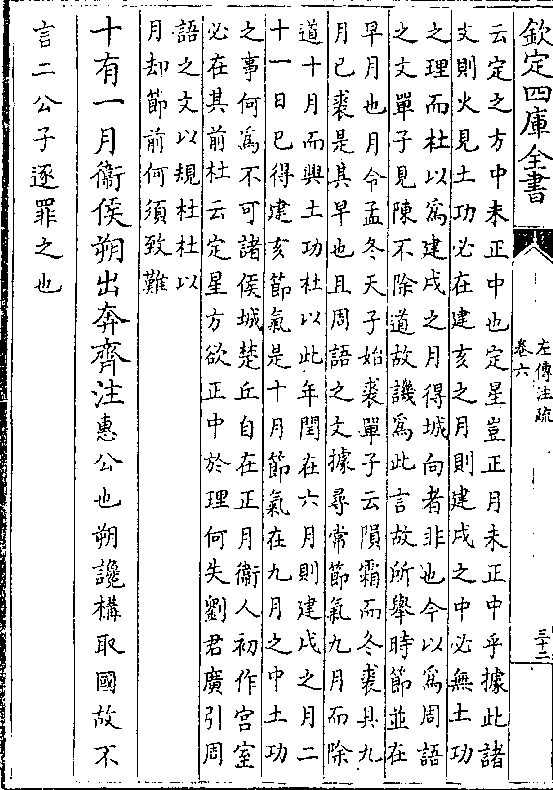 欽定四庫全書
左傳注疏
卷六
三十二
云定之方中未正中也定星豈正月未正中乎據此諸
文則火見土功必在建亥之月則建戌之中必無土功
之理而杜以為建戌之月得城向者非也今以為周語
之文單子見陳不除道故譏為此言故所舉時節並在
早月也月令孟冬天子始裘單子云隕霜而冬裘具九
月已裘是其早也且周語之文據尋常節氣九月而除
道十月而興土功杜以此年閏在六月則建戌之月二
十一日已得建亥節氣是十月節氣在九月之中土功
之事何為不可諸侯城楚丘自在正月衛人初作宮室
必在其前杜云定星方欲正中於理何失劉君廣引周
語之文以規杜杜以
月却節前何須致難
十有一月衛侯朔出奔齊注惠公也朔讒構取國故不
言二公子逐罪之也